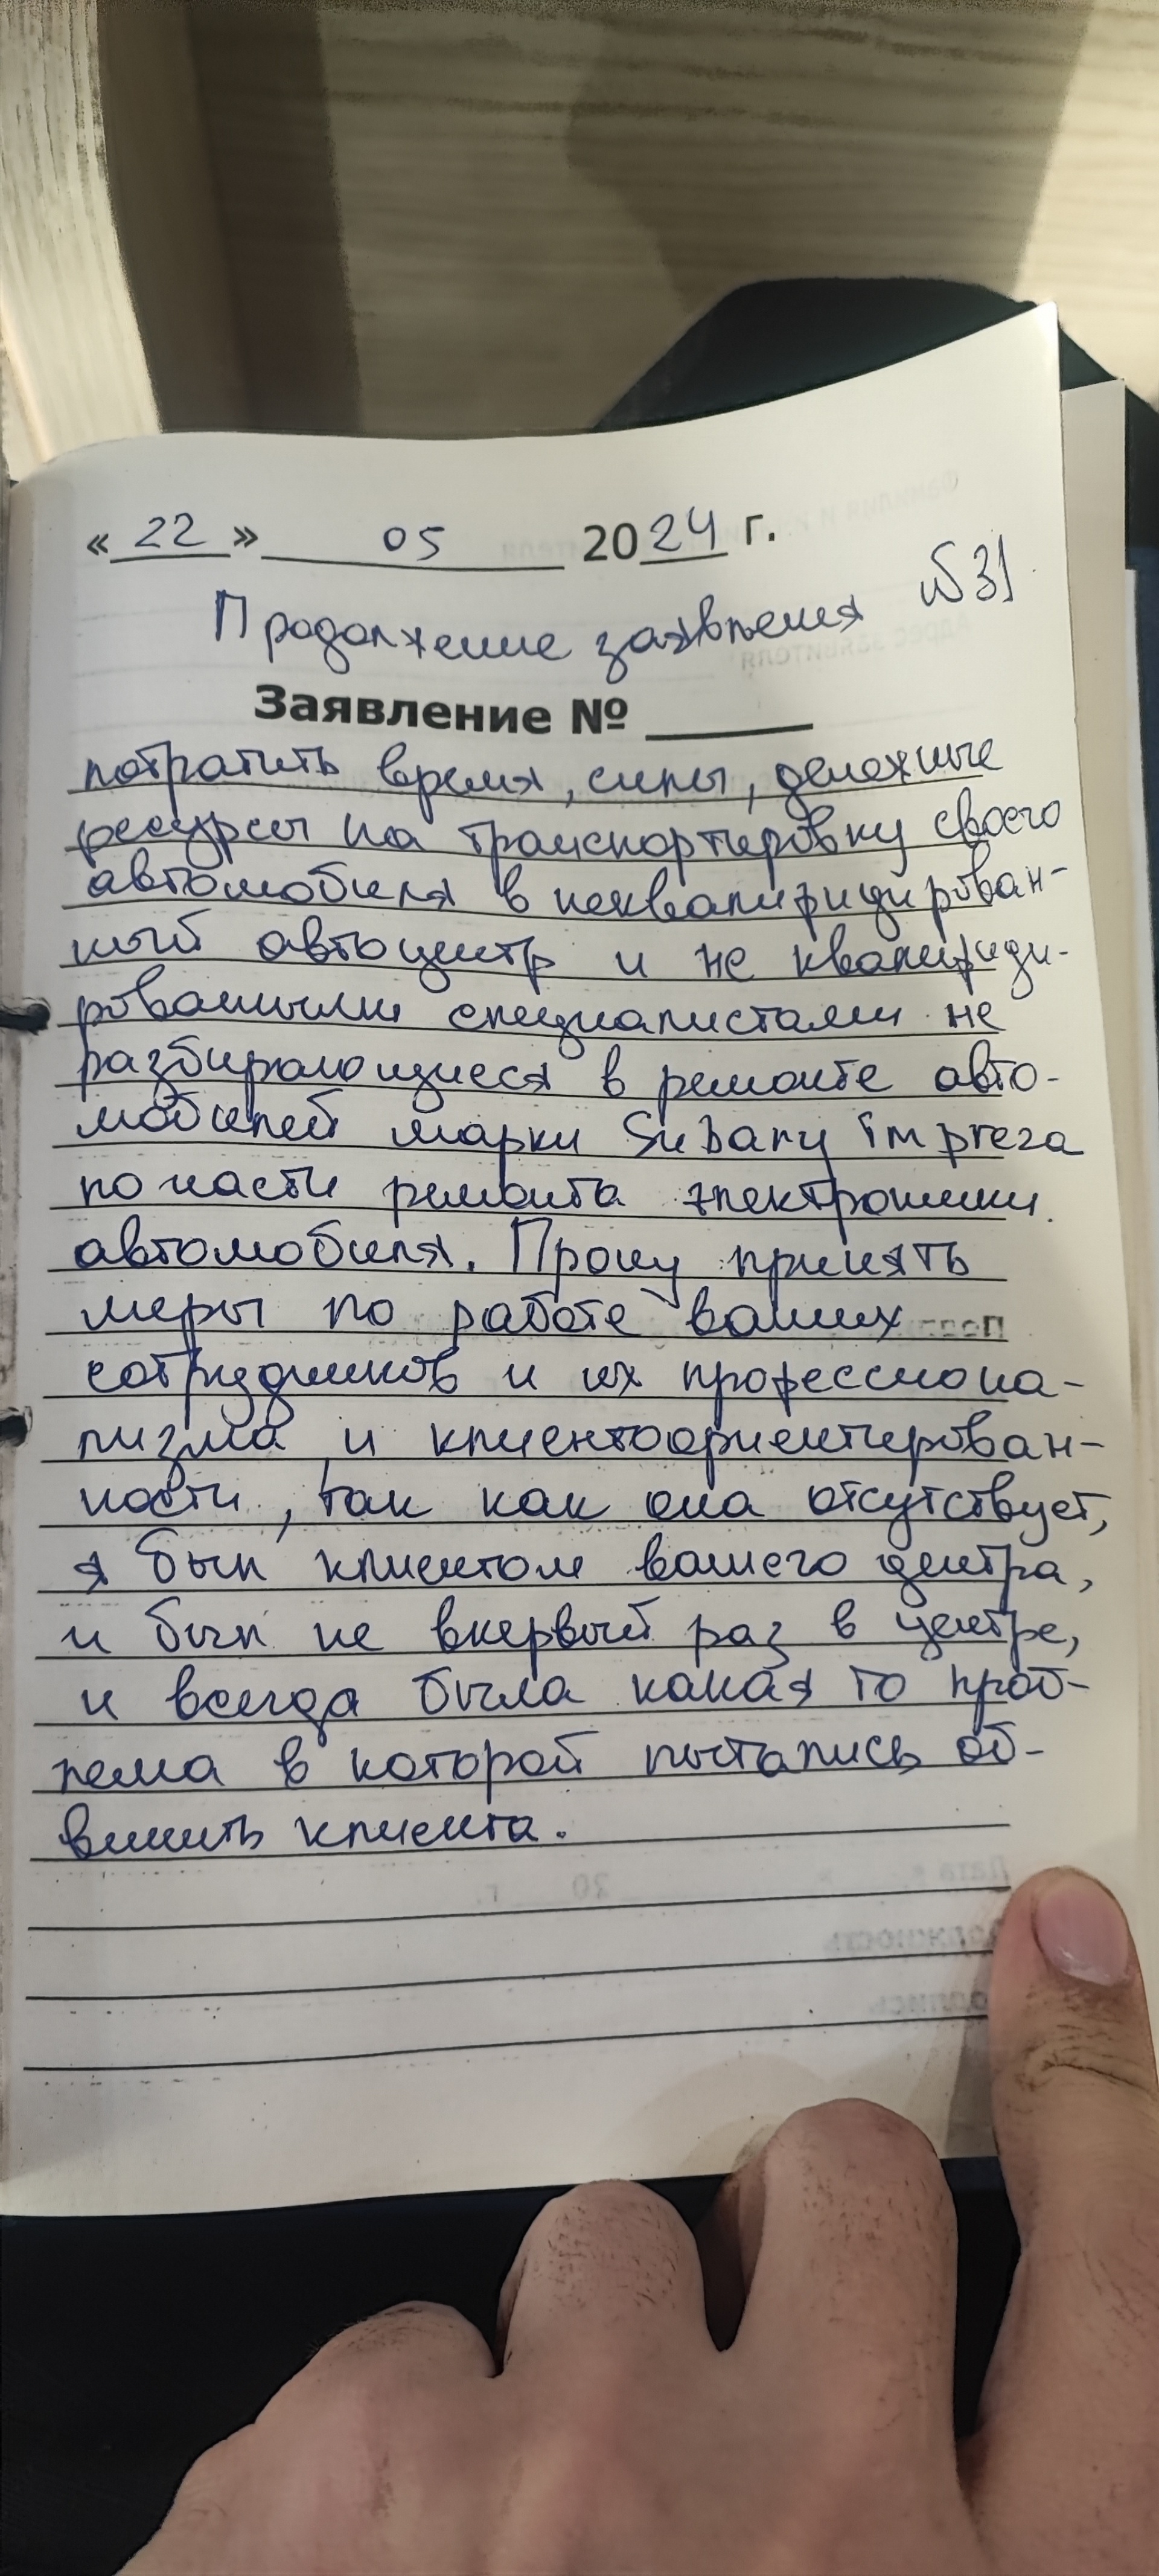 « 22 » 05 2024 г.
№31
Продолжение заявления
Заявление №
потратить время, силы, денежные
ресурсы на транспортировку своего
автомобиля в неквалифицирован-
ный автоцентр и не квалифици-
рованными специалистами не
разбирающиеся в ремонте авто-
мобилей марки Subaru impreza
по части ремонта электроники
автомобиля. Прошу принять
меры по работе ваших
сотрудников и их профессиона-
лизма и клиентоориентирован-
ности, так как она отсутствует,
я был клиентом вашего центра,
и был не впервый раз в центре,
и всегда была какая то проб-
лема в которой пытались об-
винить клиента.